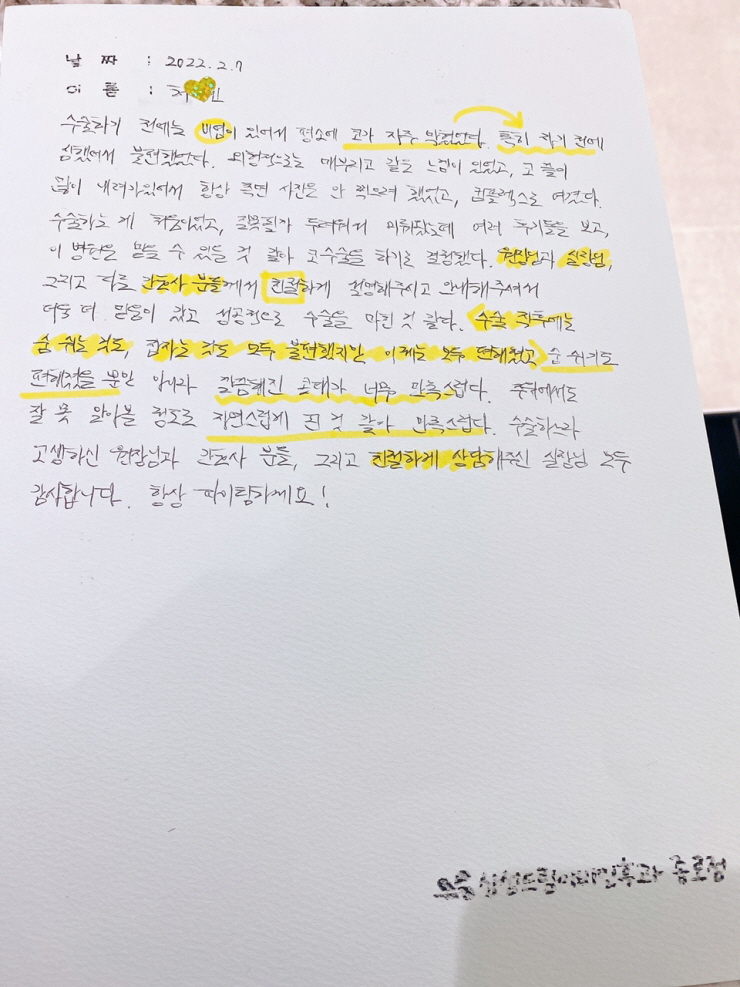 날 짜 : 2022. 2. 7
이 름 : 허
수술하기 전에는 비염이 있어서 평소에 코가 자주 막혔었다. 특히 자기 전에
심했어서 불편했었다. 외관적으로는 매부리코 같은 느낌이 있었고, 코 끝이
많이 내려가있어서 항상 측면 사진은 안 찍으려 했었고, 콤플렉스로 여겼다.
수술하는 게 처음이었고, 잘못될까 두려워서 미뤄왔는데 여러 후기들을 보고,
이 병원은 믿을 수 있을 것 같아 코수술을 하기로 결정했다. 원장님과 실장님,
그리고 다른 간호사 분들께서 친절하게 설명해주시고 안내해주셔서
더욱 더 믿음이 갔고 성공적으로 수술을 마친 것 같다. 수술 직후에는
숨 쉬는 것도, 잠자는 것도 모두 불편했지만 이제는 모두 편해졌고 숨 쉬기도
편해졌을 뿐만 아니라 깔끔해진 콧대가 너무 만족스럽다. 주위에서도
잘 못 알아볼 정도로 자연스럽게 된 것 같아 만족스럽다. 수술하느라
고생하신 원장님과 간호사 분들, 그리고 친절하게 상담해주신 실장님 모두
감사합니다. 항상 파이팅하세요!
으뜸삼성드림이비인후과 종로점